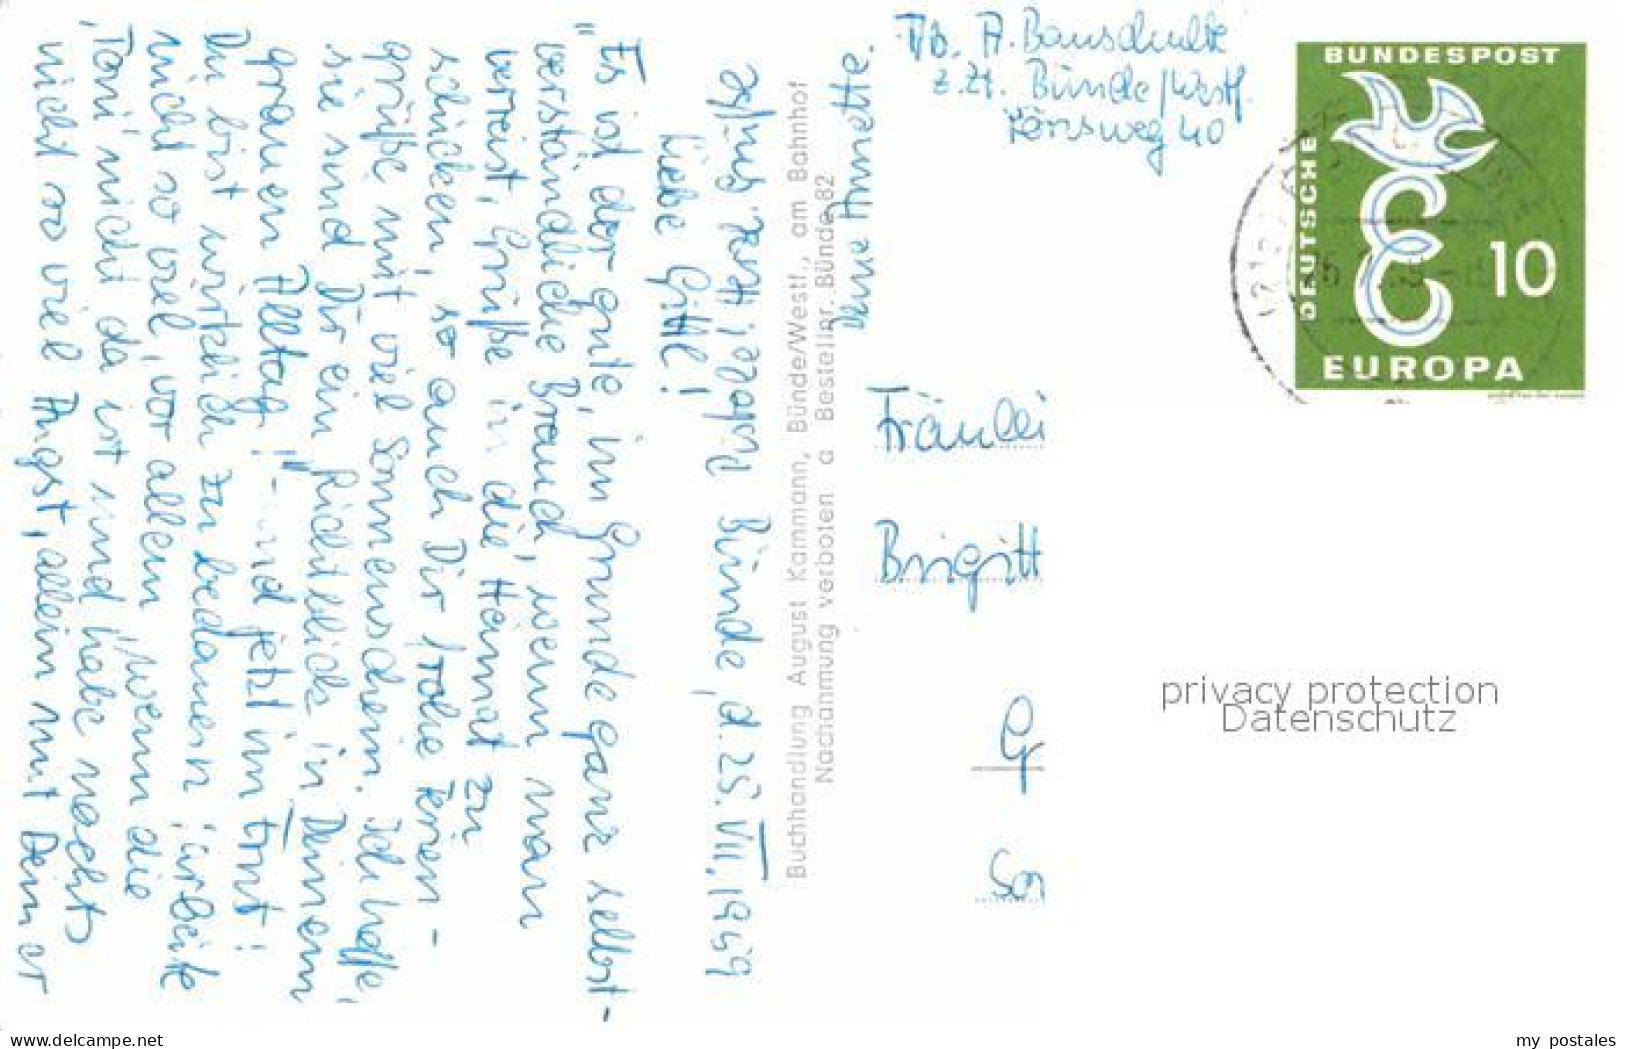 Bünde, d. 25. VII. 1959
Liebe Gitti!
"Es ist der gute, im Grunde ganz selbst-
verständliche Brauch, wenn man
verreist, Grüße in die Heimat zu
schicken, so auch Dir frohe Ferien-
grüße mit viel Sonnenschein. Ich hoffe,
sie sind Dir ein Lichtblick in Deinem
grauen Alltag!" und jetzt im Ernst!
Du bist wirklich zu bedauern, arbeite
nicht so viel, vor allem, wenn die
Toni nicht da ist und habe nachts
nicht so viel Angst, allein mit Deiner
Deine Annette.
Buchhandlung August Kammann, Bünde/Westf., am Bahnhof
Nachahmung verboten a Bestellnr. Bünde 82
Abs. A. Bauschulte
z. Zt. Bünde/Westf.
40
BUNDESPOST
DEUTSCHE
10
EUROPA
Fräulei
Brigitt
G
privacy protection
Datenschutz
www.ansichtskartenversand.com
my postales